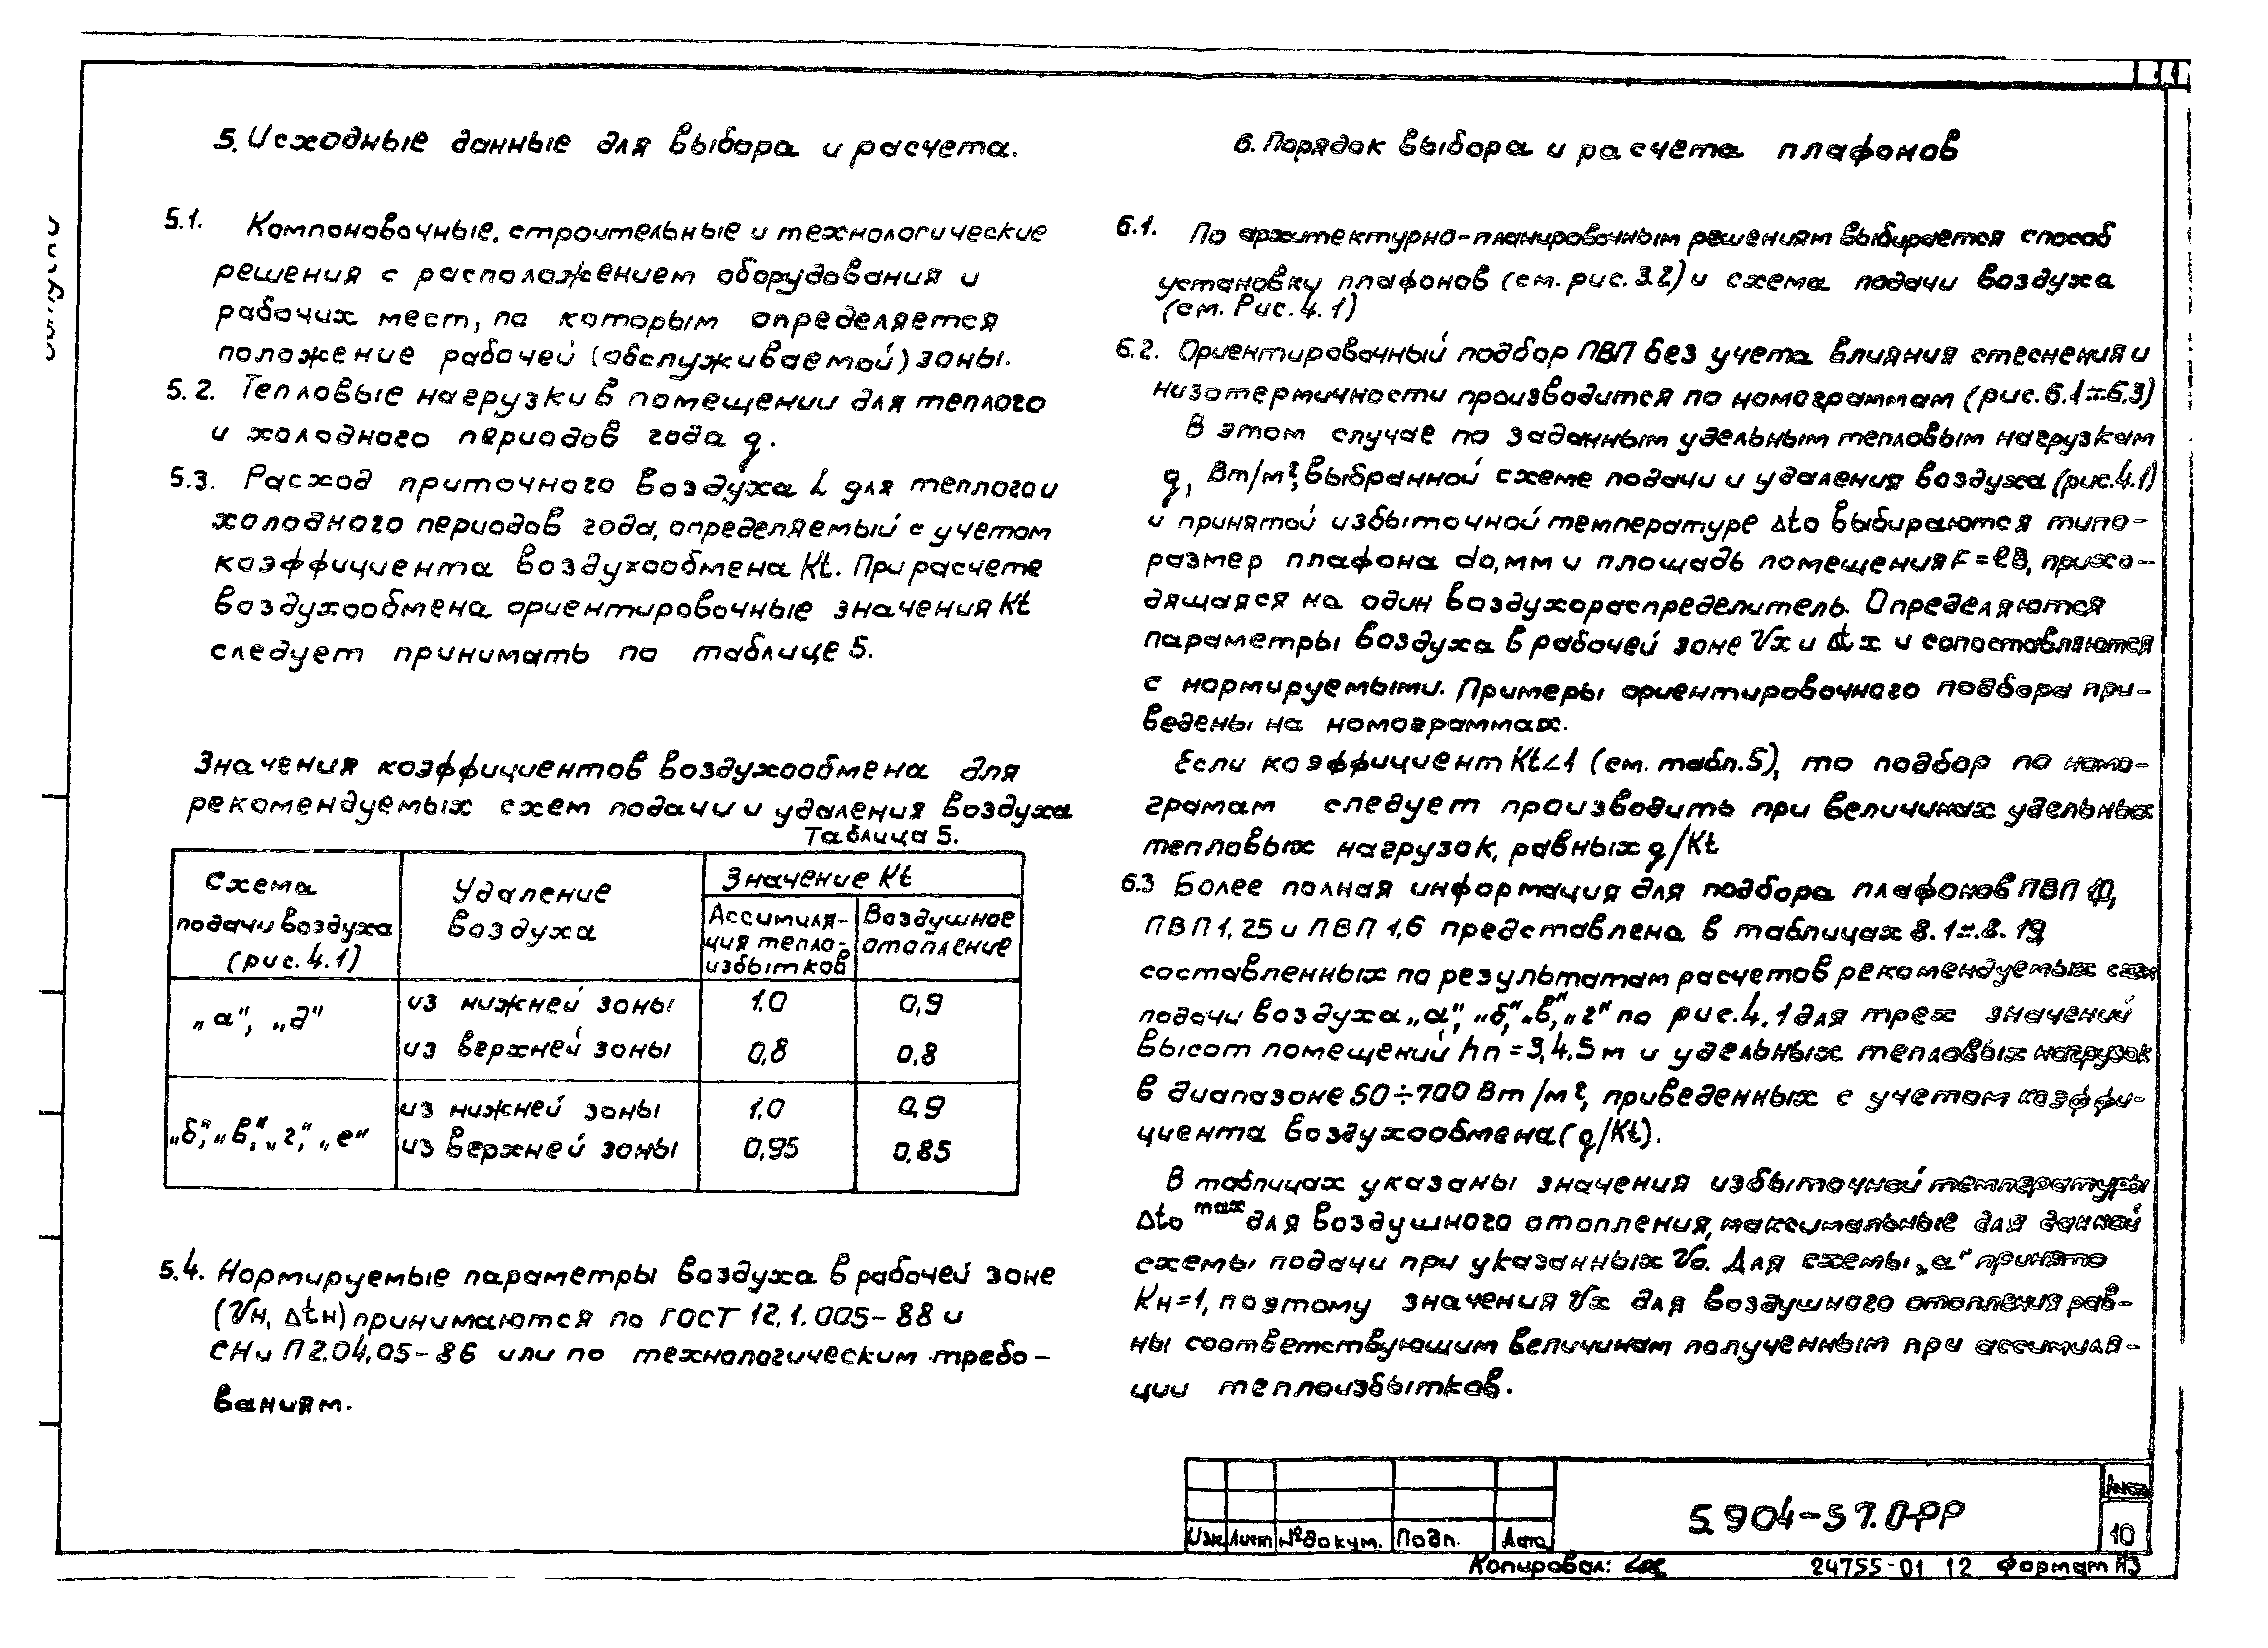 5. Исходные данные для выбора и расчета.
5.1. Компоновочные, строительные и технологические
решения с расположением оборудования и
рабочих мест, по которым определяется
положение рабочей (обслуживаемой) зоны.
5.2. Тепловые нагрузки в помещении для теплого
и холодного периодов года q.
5.3. Расход приточного воздуха L для теплого и
холодного периодов года, определяемый с учетом
коэффициента воздухообмена Kt. При расчете
воздухообмена ориентировочные значения Kt
следует принимать по таблице 5.
Значения коэффициентов воздухообмена для
рекомендуемых схем подачи и удаления воздуха
Таблица 5.
Схема
подачи воздуха
(рис. 4.1)
Удаление
воздуха
Значение Kt
Ассимиля-
ция тепло-
избытков
Воздушное
отопление
„а", „д"
из нижней зоны 1.0 0,9
из верхней зоны 0,8 0,8
„б", „в", „г", „е"
из нижней зоны 1,0 0,9
из верхней зоны 0,95 0,85
5.4. Нормируемые параметры воздуха в рабочей зоне
(Vн, Δtн) принимаются по ГОСТ 12.1.005-88 и
СНиП 2.04.05-86 или по технологическим требо-
ваниям.
6. Порядок выбора и расчета плафонов
6.1. По архитектурно-планировочным решениям выбирается способ
установки плафонов (см. рис. 3.2) и схема подачи воздуха
(см. Рис. 4.1)
6.2. Ориентировочный подбор ПВП без учета влияния стеснения и
низотермичности производится по номограммам (рис. 6.1÷6.3)
В этом случае по заданным удельным тепловым нагрузкам
q, Вт/м², выбранной схеме подачи и удаления воздуха (рис. 4.1)
и принятой избыточной температуре Δto выбираются типо-
размер плафона do, мм и площадь помещения F=ℓВ, прихо-
дящаяся на один воздухораспределитель. Определяются
параметры воздуха в рабочей зоне Vx и Δtx и сопоставляются
с нормируемыми. Примеры ориентировочного подбора при-
ведены на номограммах.
Если коэффициент Kt<1 (см. табл. 5), то подбор по номо-
грамам следует производить при величинах удельных
тепловых нагрузок, равных q/Kt
6.3 Более полная информация для подбора плафонов ПВП
ПВП 1,25 и ПВП 1,6 представлена в таблицах 8.1÷8.19,
составленных по результатам расчетов рекомендуемых схем
подачи воздуха „а", „б", „в", „г" по рис. 4.1 для трех значений
высот помещений hп = 3,4,5 м и удельных тепловых нагрузок
в диапазоне 50÷700 Вт/м², приведенных с учетом коэффи-
циента воздухообмена (q/Kt).
В таблицах указаны значения избыточной температуры
Δto max для воздушного отопления, максимальные для данной
схемы подачи при указанных Vo. Для схемы „а" принято
Kн=1, поэтому значения Vx для воздушного отопления рав-
ны соответствующим величинам полученным при ассимиля-
ции теплоизбытков.
Изм Лист № докум. Подп. Дата
5.904-57.0-РР
Лист
10
Копировал:
24755-01 12 Формат А3